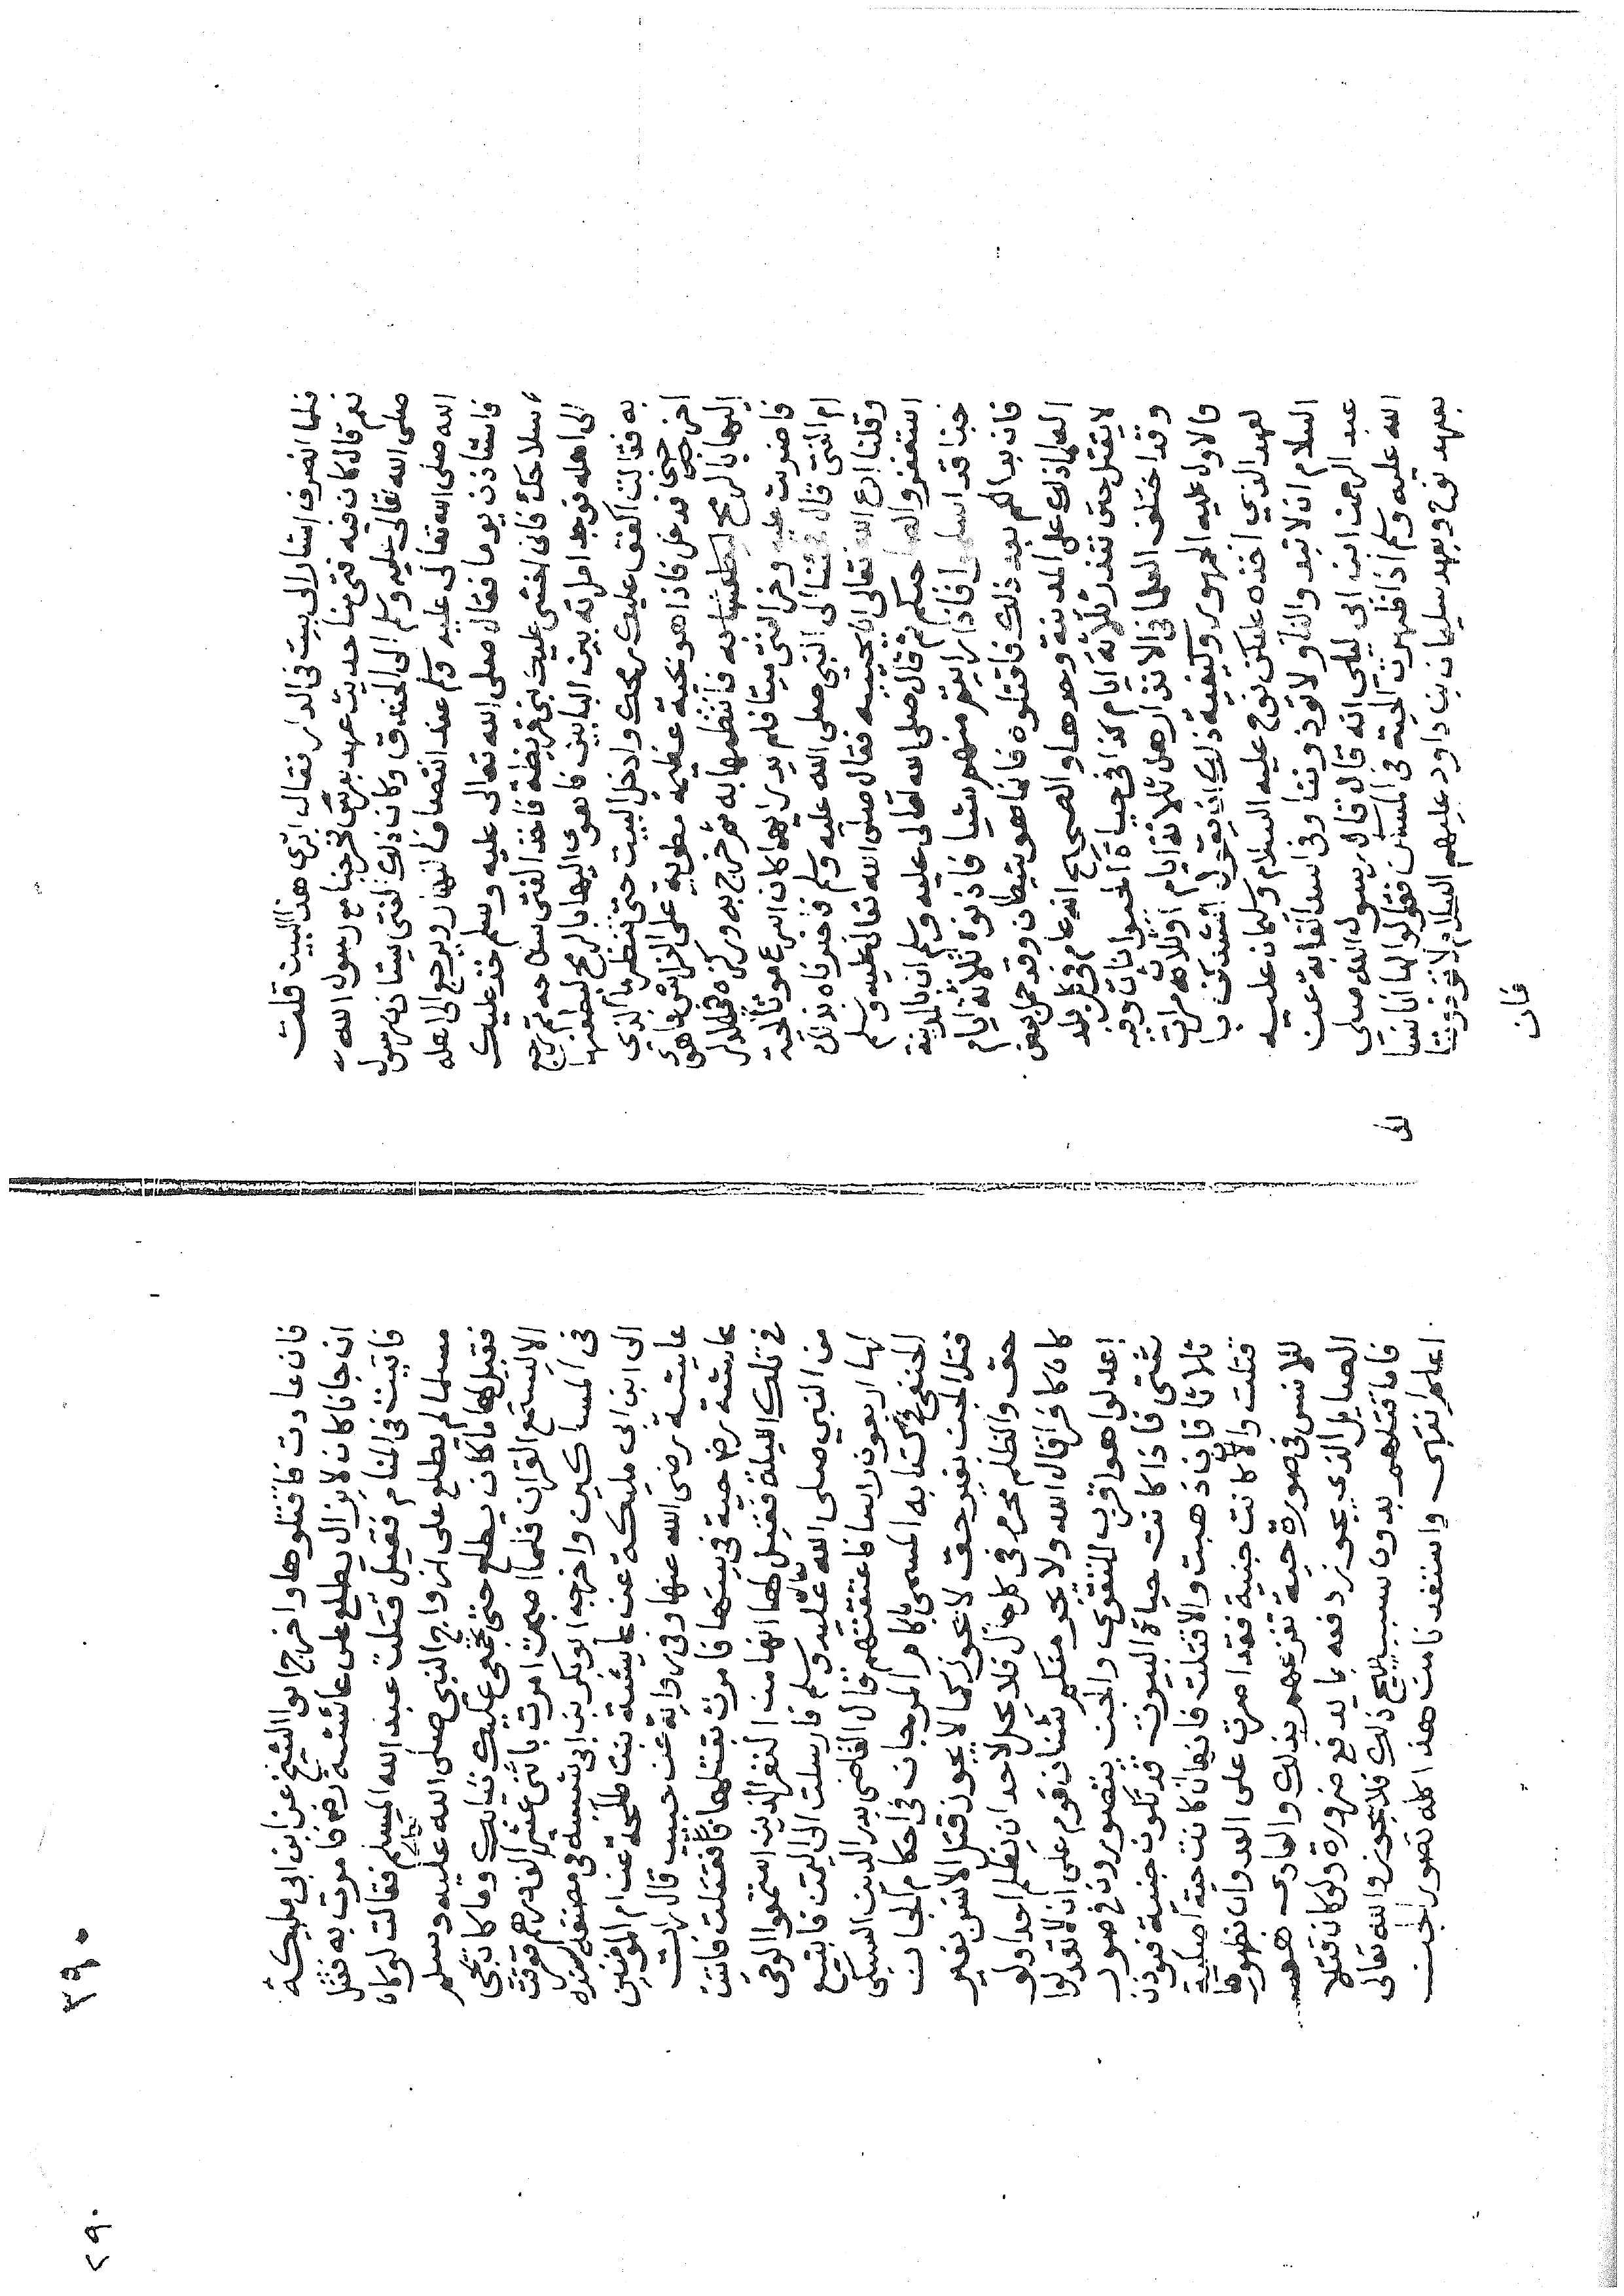 فلما انصرف اشار الى بيت فى الدار فقال اترى هذا البيت قلت
نعم قال كان فيه فتى منا حديث عهد بعرس فخرجنا مع رسول الله
صلى الله تعالى عليه وسلم الى الخندق وكان ذلك الفتى يستاذن رسول
الله صلى الله تعالى عليه وسلم عند انتصاف النهار ويرجع الى اهله
فاستاذن يوما فقال صلى الله تعالى عليه وسلم خذ عليك
سلاحك فانى اخشى عليك بنى قريظة فاخذ الفتى سلاحه ثم رجع
الى اهله فوجد امراته بين البابين فاهوى اليها بالرمح ليطعنها
به فقالت اكفف عليك رمحك وادخل البيت حتى تنظر ما الذي
اخرجنى فدخل فاذا هو بحية عظيمة مطوية على الفراش فاهوى
اليها بالرمح ليطعنها به فانتظمها به ثم خرج به وركزه فى الدار
فاضطربت عليه وخر الفتى ميتا فلم يدر ايهما كان اسرع موتا الحية
ام الفتى قال فجئنا الى النبى صلى الله عليه وسلم فاخبرناه بذلك
وقلنا ادع الله تعالى ان يحييه فقال صلى الله تعالى عليه وسلم
استغفروا لصاحبكم ثم قال صلى الله تعالى عليه وسلم ان بالمدينة
جنا قد اسلموا فاذا رايتم منهم شيا فاذنوه ثلاثة ايام
فان بدا لكم بعد ذلك فاقتلوه فانما هو شيطان وقد حمل بعض
العلما ذلك على المدينة وحدها والصحيح انه عام فى كل بلد
لا يقتل حتى تنذر ثلاثة ايام كذا فى حياة الحيوانات وفيه
وقد اختلف العلما فى الانذار هل ثلاثة ايام او ثلاث مرات
والاول عليه الجمهور وكيفية ذلك ان يقول انشدكن با
لعهد الذي اخذه عليكن نوح عليه السلام وسليمان عليه
السلام ان لا تبدوا لنا ولا تؤذوننا وفى اسد الغابة عن
عبد الرحمن ابن ابى ليلى انه قال قال رسول الله صلى
الله عليه وسلم اذا ظهرت الحية فى المسكن فقولوا لها انا نسا
لك بعهد نوح وبعهد سليمان بن داود عليهم السلام لا تؤذوننا
فان
فان عادت فاقتلوها واخرج ابو الشيخ عن ابن ابى مليكة
ان جانا كان لا يزال يطلع على عائشة رضـ فامرت به فقتل
فاتيت فى المنام فقيل قتلت عبد الله المسلم فقالت لو كان
مسلما لم يطلع على ازواج النبى صلى الله عليه وسلم
فقيل لها ما كان يطلع حتى تجمعى عليك ثيابك وما كان يجئ
الا ليستمع القران فلما اصبحت امرت باثنى عشر الف درهم ففرقت
فى المساكين واخرجه ابو بكر بن ابى شيبه فى مصنفه بسنده
الى ابن ابى مليكة عن عايشة بنت طلحة عن ام المومنين
عايشة رضى الله عنها وفى رواية عن حبيب قال رات
عايشة رضـ حية فى بيتها فامرت بقتلها فقتلت فاتيت
فى تلك الليلة فقيل لها انها من النفر الذين استمعوا الوحى
من النبى صلى الله تعالى عليه وسلم فارسلت الى اليمن فابتيع
لها اربعون راسا فاعتقتهم قال القاضى بدر الدين الشبلى
الحنفى فى كتابه المسمى باكام المرجان فى احكام الجان
قتل الجن بغير حق لا يجوز كما لا يجوز قتل الانس بغير
حق والظلم محرم فى كل حال فلا يحل لاحد ان يظلم احدا ولو
كان كافرا قال الله ولا يجرمنكم شنان قوم على ان لا تعدلوا
اعدلوا هو اقرب للتقوى والجن يتصورون فى صور
شتى فاذا كانت حيات البيوت قد تكون جنية فتوذن
ثلاثا فان ذهبت والا قتلت فانها ان كانت حية اصلية
قتلت والا كانت جنية فقد اصرت على العدوان بظهورها
للانس فى صورة حية تفزعهم بذلك والعادى هو
الصايل الذي يجوز دفعه بما يدفع ضرره ولو كان قتلا
فاما قتلهم بدون سبب يبيح ذلك فلا يجوز والله تعالى
اعلم انتهى واستفدنا من هذا كله تصور الجن
٣٩٠
٢٩٠